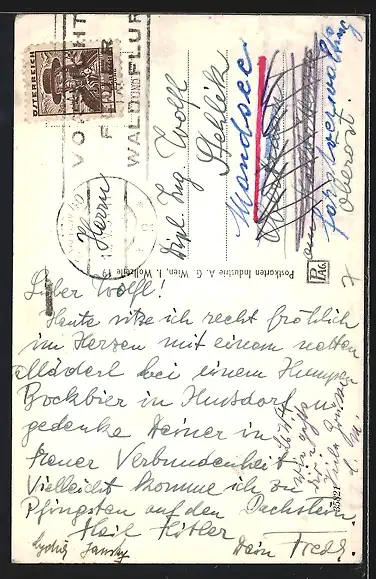 ÖSTERREICH
VORSICHT
FEUER
WALD FLUR
Herrn
Dipl. Ing. Wolfl
Stehlik
Mondsee
Forstverwaltung
Oberöst.
Postkarten Industrie A. G. Wien, I. Wollzeile 19
PIAG
Lieber Wolfl!
Heute sitze ich recht fröhlich
im Herzen mit einem netten
Mäderl bei einem Humpen
Bockbier in
gedenke Deiner in
treuer Verbundenheit
Vielleicht komme ich zu
Pfingsten auf den Dachstein
Heil Hitler
Dein Fredl.